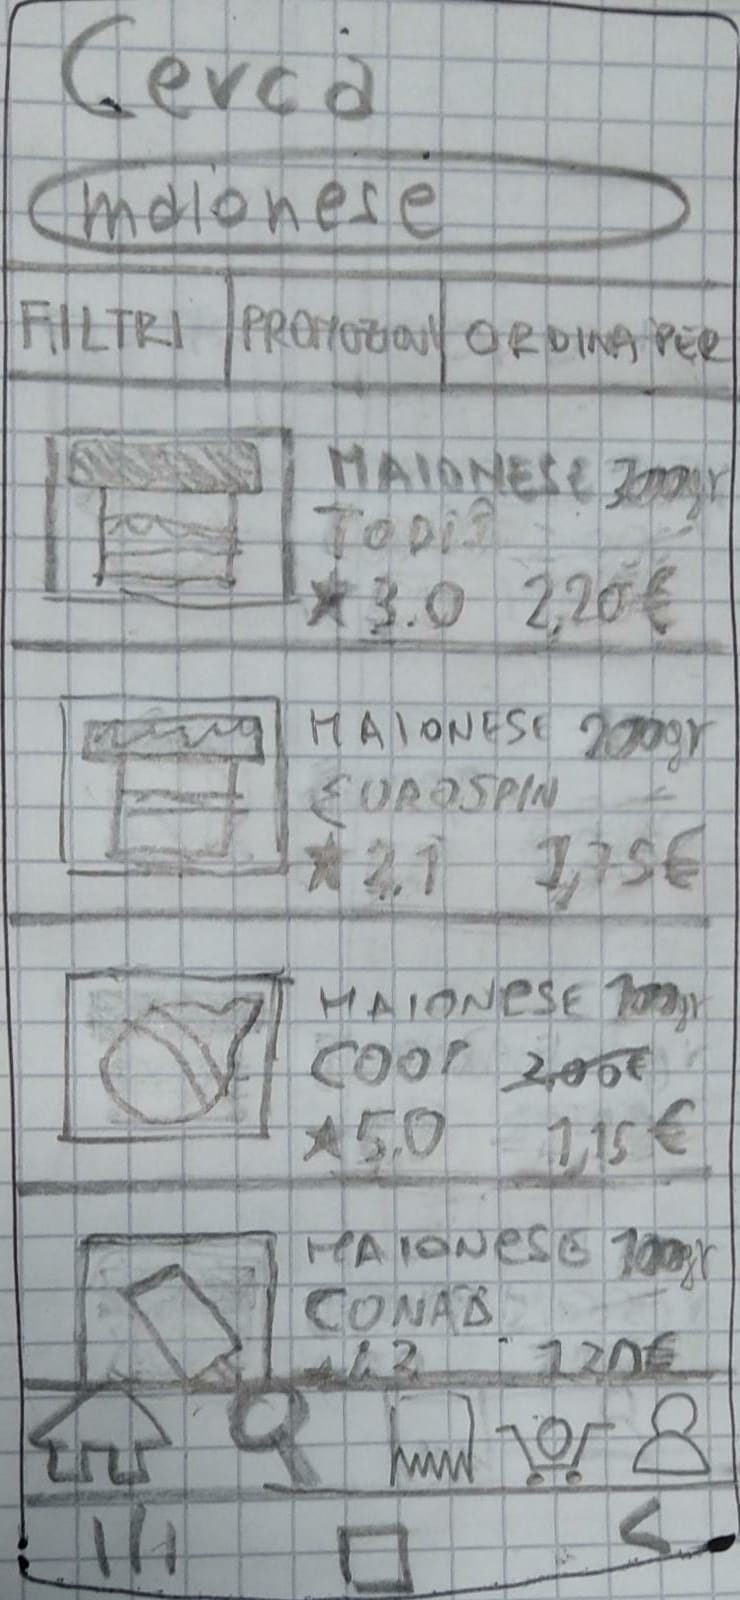 Cerca
maionese
FILTRI PROMOZIONI ORDINA PER
MAIONESE 300gr
TODIS
★3.0 2,20€
MAIONESE 200gr
EUROSPIN
1,75€
MAIONESE 100gr
COOP 2,00€
★5.0 1,15€
MAIONESE 100gr
CONAD